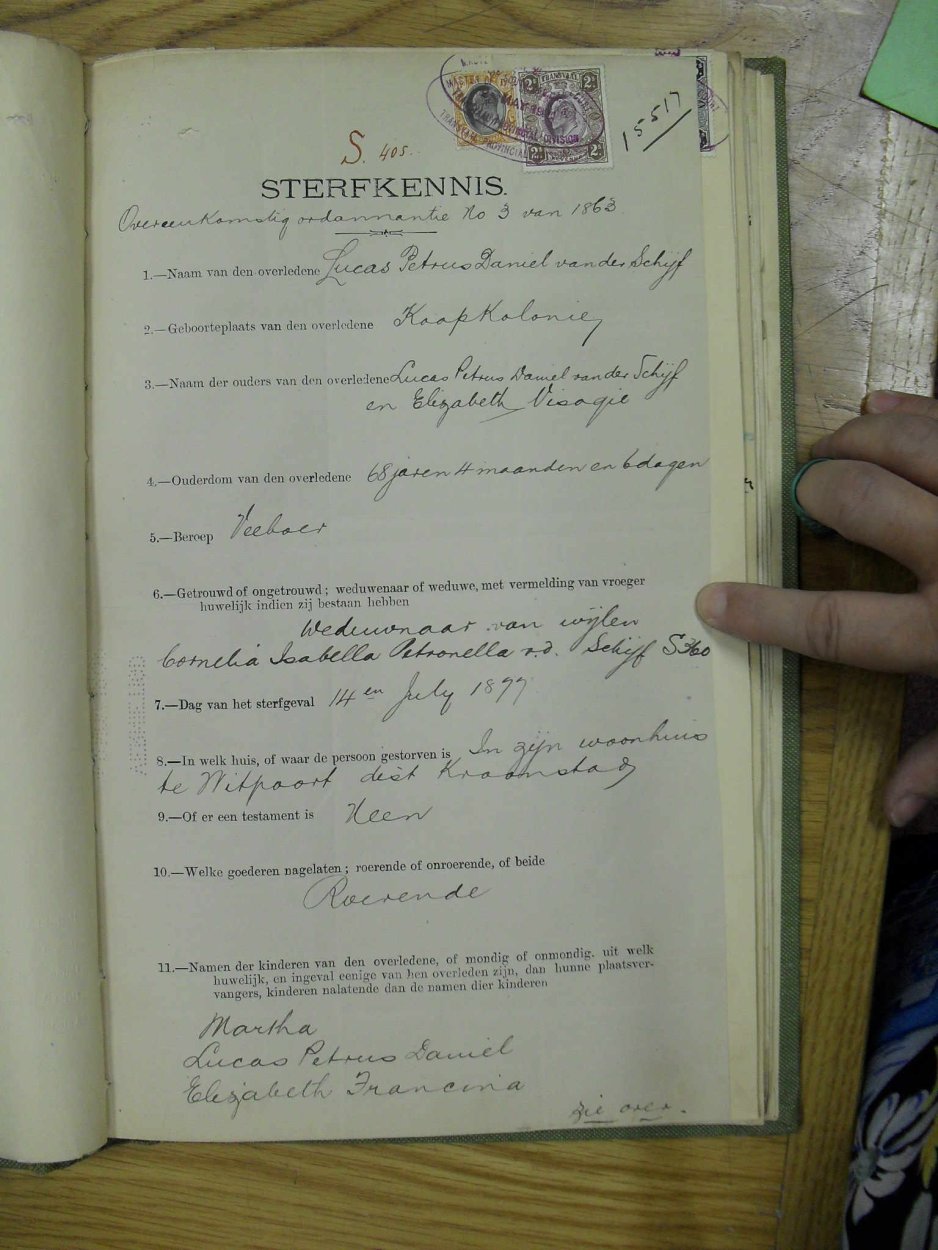 15517
TRANSVAAL
S. 405.
STERFKENNIS.
Overeenkomstig ordonnantie No 3 van 1863
1.—Naam van den overledene Lucas Petrus Daniel van der Schijf
2.—Geboorteplaats van den overledene Kaapkolonie
3.—Naam der ouders van den overledene Lucas Petrus Daniel van der Schijf
en Elizabeth Visagie
4.—Ouderdom van den overledene 68 jaren 4 maanden en 6 dagen
5.—Beroep Veeboer
6.—Getrouwd of ongetrouwd; weduwenaar of weduwe, met vermelding van vroeger
huwelijk indien zij bestaan hebben
Weduwnaar van wijlen
Cornelia Isabella Petronella v.d. Schijf S360
7.—Dag van het sterfgeval 14en July 1899
8.—In welk huis, of waar de persoon gestorven is In zijn woonhuis
te Witpoort dist Kroonstad
9.—Of er een testament is Neen
10.—Welke goederen nagelaten; roerende of onroerende, of beide
Roerende
11.—Namen der kinderen van den overledene, of mondig of onmondig. uit welk
huwelijk, en ingeval eenige van hen overleden zijn, dan hunne plaatsver-
vangers, kinderen nalatende dan de namen dier kinderen
Martha
Lucas Petrus Daniel
Elizabeth Francina
zie over.